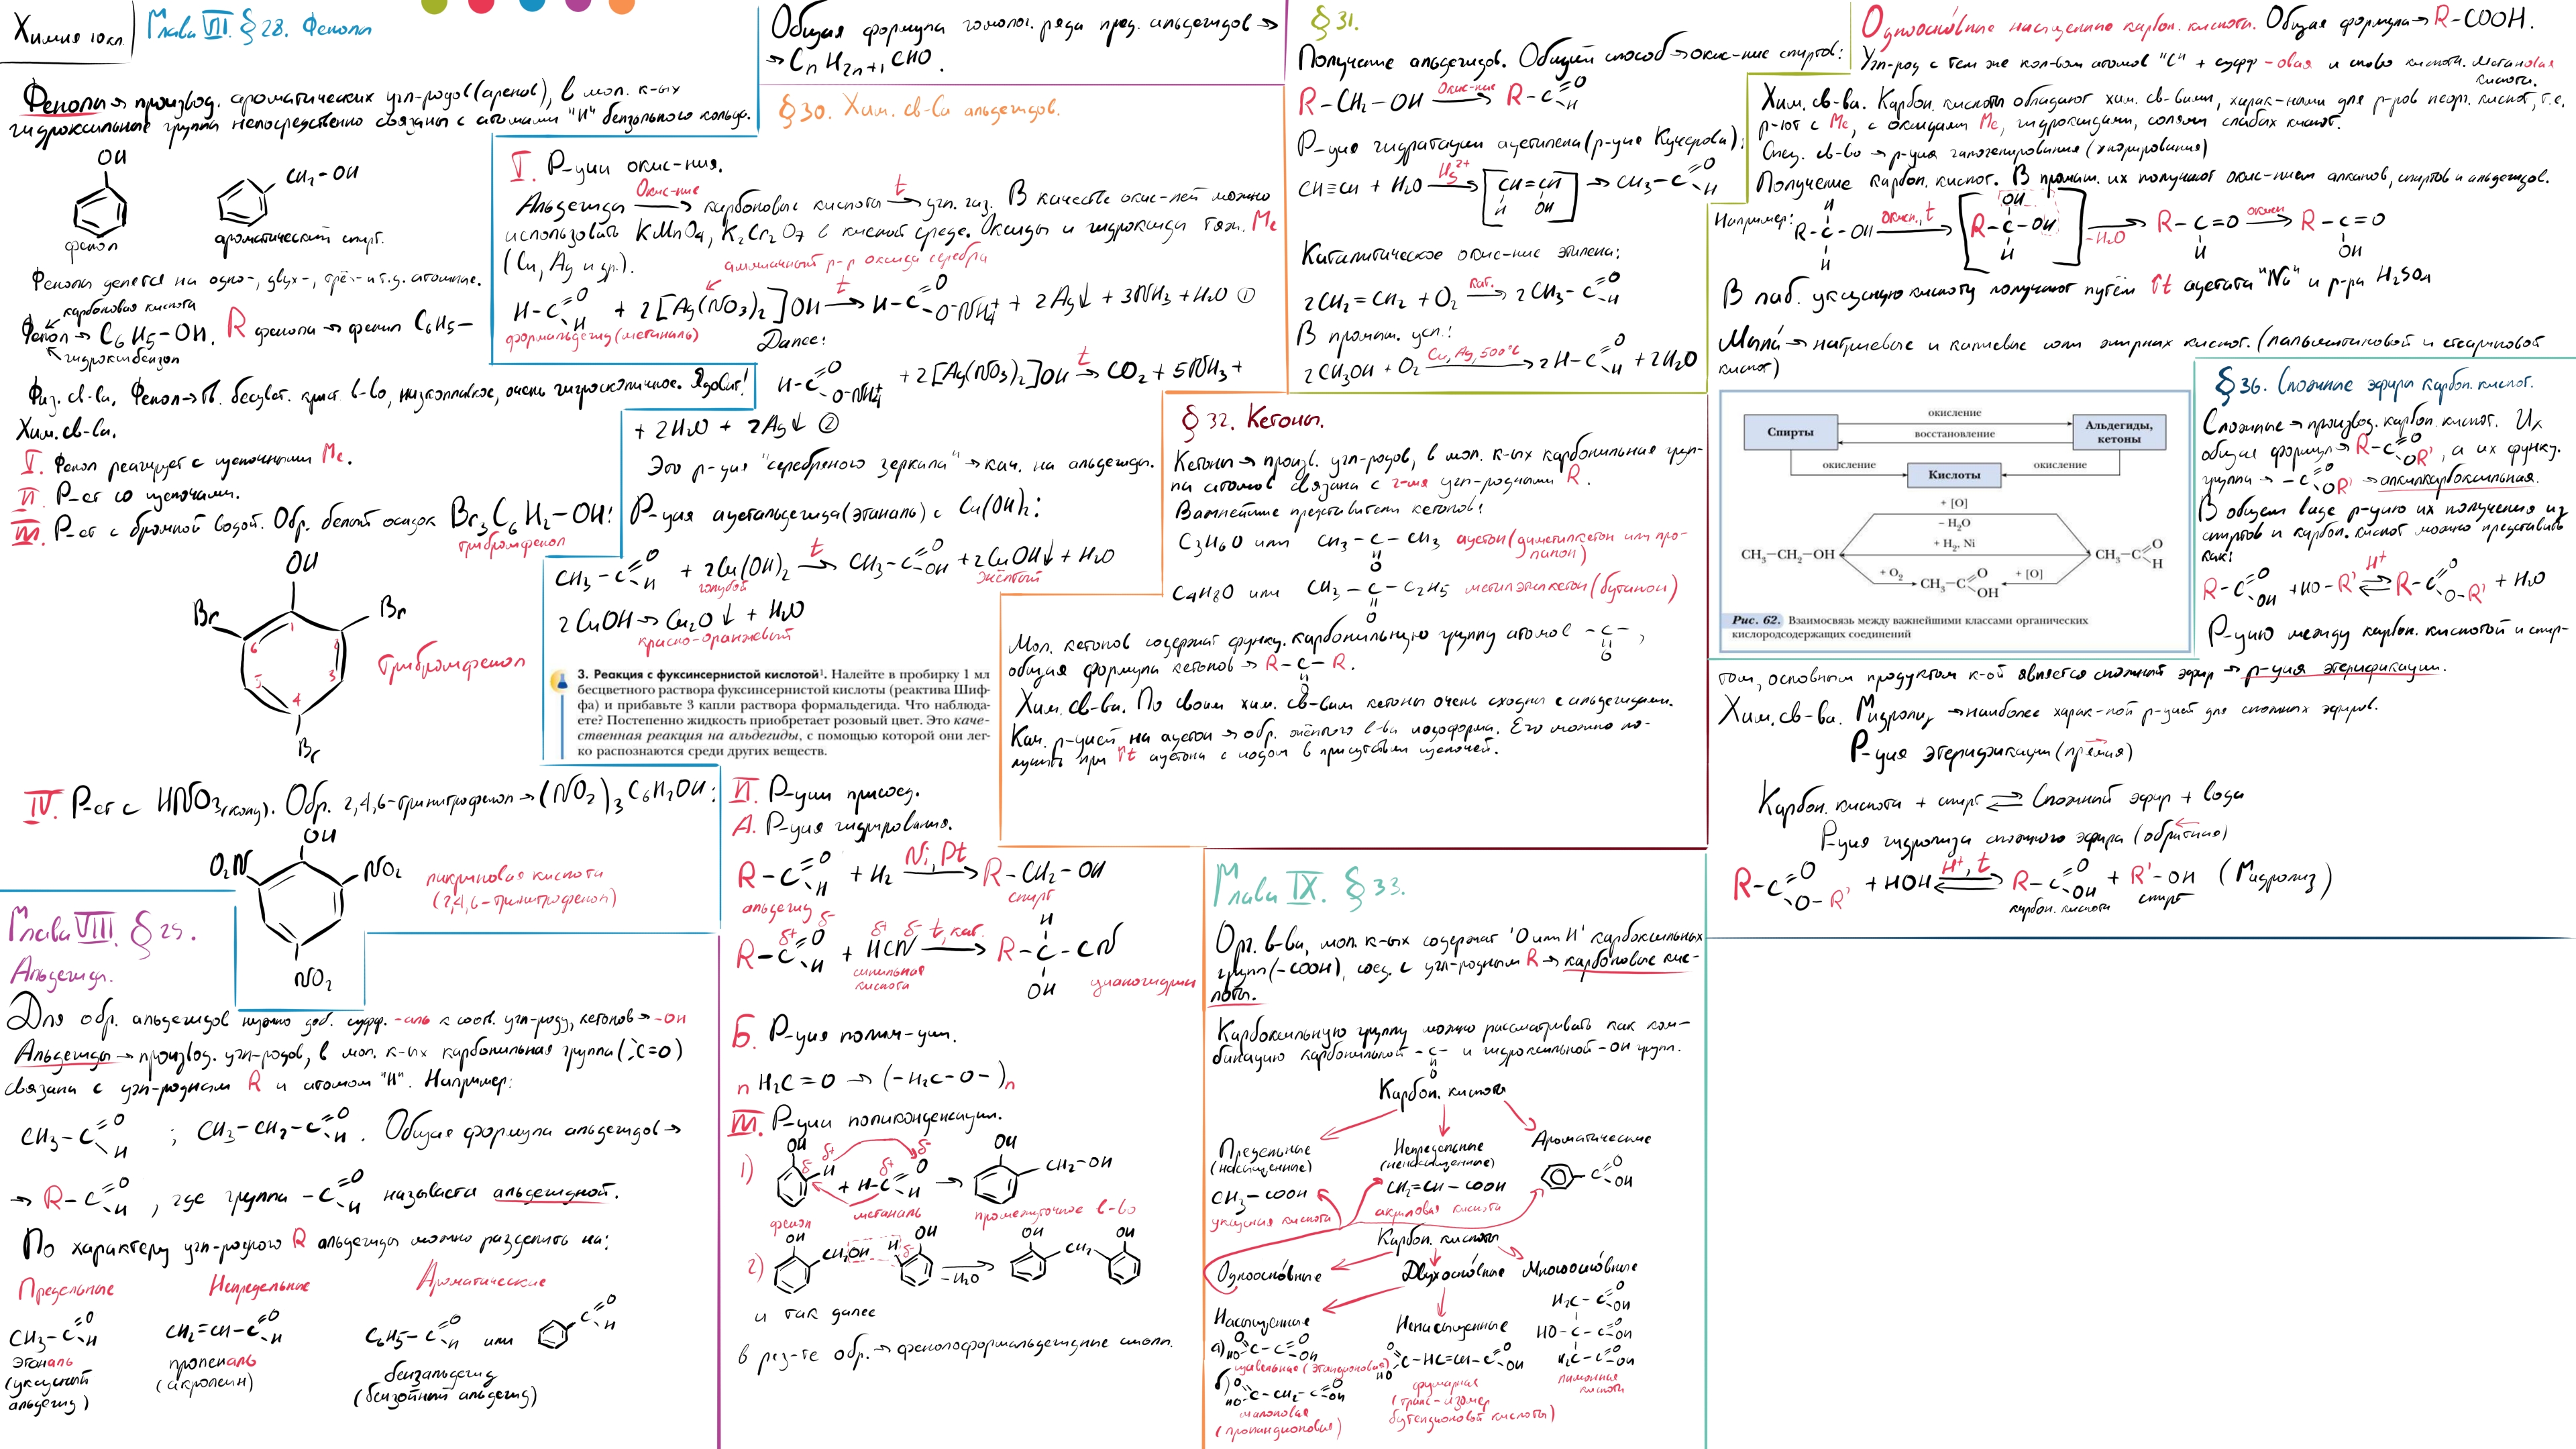 Химия 10кл.
Глава VII. § 28. Фенолы
Фенолы → производ. ароматических угл-родов (аренов), в мол. к-ых
гидроксильные группы непосредственно связаны с атомами "Н" бензольного кольца.
OH
CH₂-OH
фенол
ароматический спирт.
Фенолы делятся на одно-, двух-, трёх- и т.д. атомные.
карбоновая кислота
Фенол → C₆H₅-OH. R фенола → фенил C₆H₅-
гидроксибензол
Физ. св-ва. Фенол → тв. бесцвет. крист. в-во, низкоплавкое, очень гигроскопичное. Ядовит!
Хим. св-ва.
I. Фенол реагирует с щелочными Me.
II. Р-ет со щелочами.
III. Р-ет с бромной водой. Обр. белый осадок Br₃C₆H₂-OH:
трибромфенол
OH
Br
Br
1
6
3
5
4
Br
трибромфенол
IV. Р-ет с HNO₃(конц). Обр. 2,4,6-тринитрофенол → (NO₂)₃C₆H₂OH:
OH
O₂N
NO₂
NO₂
пикриновая кислота
(2,4,6-тринитрофенол)
Глава VIII. § 29.
Альдегиды.
Для обр. альдегидов нужно доб. суфф. -аль к соотв. угл-роду, кетонов → -он
Альдегиды → производ. угл-родов, в мол. к-ых карбонильная группа (C=O)
связана с угл-родным R и атомом "Н". Например:
CH₃-C=O H ; CH₃-CH₂-C=O H . Общая формула альдегидов →
→ R-C=O H , где группа -C=O H называется альдегидной.
По характеру угл-родного R альдегиды можно разделить на:
Предельные
Непредельные
Ароматические
CH₃-C=O H
CH₂=CH-C=O H
C₆H₅-C=O H или C=O H
этаналь
(уксусный
альдегид)
пропеналь
(акролеин)
бензальдегид
(бензойный альдегид)
Общая формула гомолог. ряда пред. альдегидов →
→ CnH2n+1CHO.
§ 30. Хим. св-ва альдегидов.
I. Р-ции окис-ния.
Альдегиды Окис-ние → карбоновые кислоты t → угл. газ. В качестве окис-лей можно
использовать KMnO₄, K₂Cr₂O₇ в кислой среде. Оксиды и гидроксиды тяж. Me
(Cu, Ag и др.).
аммиачный р-р оксида серебра
H-C=O H + 2[Ag(NO₃)₂]OH t → H-C=O O-NH₄ + 2Ag↓ + 3NH₃ + H₂O ①
формальдегид (метаналь)
Далее:
H-C=O O-NH₄ + 2[Ag(NO₃)₂]OH t → CO₂ + 5NH₃ +
+ 2H₂O + 2Ag↓ ②
Это р-ция "серебреного зеркала" → кач. на альдегиды.
Р-ция ацетальдегида (этаналь) с Cu(OH)₂:
CH₃-C=O H + 2Cu(OH)₂ t → CH₃-C=O OH + 2CuOH↓ + H₂O
голубой
жёлтый
2CuOH → Cu₂O↓ + H₂O
красно-оранжевый
3. Реакция с фуксинсернистой кислотой¹. Налейте в пробирку 1 мл
бесцветного раствора фуксинсернистой кислоты (реактива Шиф-
фа) и прибавьте 3 капли раствора формальдегида. Что наблюда-
ете? Постепенно жидкость приобретает розовый цвет. Это каче-
ственная реакция на альдегиды, с помощью которой они лег-
ко распознаются среди других веществ.
II. Р-ции присоед.
А. Р-ция гидрирования.
R-C=O H + H₂ Ni, Pt → R-CH₂-OH
альдегид
спирт
R-C=O H + HCN t, кат. → R-C-CN
δ+ δ- δ+ δ-
H
OH
синильная
кислота
циангидрин
Б. Р-ция полим-ции.
n H₂C=O → (-H₂C-O-)n
III. Р-ции поликонденсации.
1) OH H + H-C=O H → OH CH₂-OH
δ- δ+ δ+ δ-
фенол
метаналь
промежуточное в-во
2) OH CH₂OH H OH -H₂O → OH CH₂ OH
и так далее
в рез-те обр. → фенолоформальдегидные смолы.
§ 31.
Получение альдегидов. Общий способ → окис-ние спиртов:
R-CH₂-OH Окис-ние → R-C=O H
Р-ция гидратации ацетилена (р-ция Кучерова):
CH≡CH + H₂O Hg²⁺ → [CH=CH H OH] → CH₃-C=O H
Каталитическое окис-ние этилена:
2CH₂=CH₂ + O₂ кат. → 2CH₃-C=O H
В промыш. усл.:
2CH₃OH + O₂ Cu, Ag, 500°C → 2H-C=O H + 2H₂O
§ 32. Кетоны.
Кетоны → произв. угл-родов, в мол. к-ых карбонильная груп-
па атомов связана с 2-мя угл-родными R.
Важнейшие представители кетонов:
C₃H₆O или CH₃-C-CH₃ ацетон (диметилкетон или про-
O
панон)
C₄H₈O или CH₃-C-C₂H₅ метилэтилкетон (бутанон)
O
Мол. кетонов содержат функц. карбонильную группу атомов -C-,
O
общая формула кетонов → R-C-R.
O
Хим. св-ва. По своим хим. св-вам кетоны очень сходны с альдегидами.
Кач. р-цией на ацетон → обр. жёлтого в-ва иодоформа. Его можно по-
лучить при ↑t ацетона с иодом в присутствии щелочей.
Глава IX. § 33.
Орг. в-ва, мол. к-ых содержат 'О или Н' карбоксильных
групп (-COOH), соед. с угл-родным R → карбоновые кис-
лоты.
Карбоксильную группу можно рассматривать как ком-
бинацию карбонильной -C- и гидроксильной -OH групп.
O
Карбон. кислоты
Предельные
(насыщенные)
Непредельные
(ненасыщенные)
Ароматические
CH₃-COOH
CH₂=CH-COOH
C=O OH
уксусная кислота
акриловая кислота
Карбон. кислоты
Одноосно́вные
Двухосно́вные
Многоосно́вные
Насыщенные
Ненасыщенные
а) O HO C-C=O OH
щавелевая (этандионовая)
б) O HO C-CH₂-C=O OH
малоновая
(пропандионовая)
O HO C-HC=CH-C=O OH
фумаровая
(транс-изомер
бутендионовой кислоты)
H₂C-C=O OH
HO-C-C=O OH
H₂C-C=O OH
лимонная
кислота
Одноосно́вные насыщенные карбон. кислоты. Общая формула → R-COOH.
Угл-род с тем же кол-вом атомов "C" + суфф -овая и слово кислота. Метановая
кислота.
Хим. св-ва. Карбон. кислоты обладают хим. св-вами, харак-ными для р-ров неорг. кислот, т.е.
р-ют с Me, с оксидами Me, гидроксидами, солями слабых кислот.
Спец. св-во → р-ция галогенирования (хлорирования)
Получение карбон. кислот. В промыш. их получают окис-нием алканов, спиртов и альдегидов.
Например:
H
R-C-OH
H
окисл., t → [OH R-C-OH H] -H₂O → R-C=O H окисл → R-C=O OH
В лаб. уксусную кислоту получают путём ↑t ацетата "Na" и р-ра H₂SO₄
Мыла́ → натриевые и калиевые соли жирных кислот. (пальмитиновой и стеариновой
кислот)
Спирты
окисление
восстановление
Альдегиды,
кетоны
окисление
Кислоты
окисление
+ [O]
− H₂O
+ H₂, Ni
CH₃−CH₂−OH
CH₃−C=O H
+ O₂
CH₃−C=O OH
+ [O]
Рис. 62. Взаимосвязь между важнейшими классами органических
кислородсодержащих соединений
§ 36. Сложные эфиры карбон. кислот.
Сложные → производ. карбон. кислот. Их
общая формула → R-C=O OR', а их функц.
группа → -C=O OR' → алкилкарбоксильная.
В общем виде р-цию их получения из
спиртов и карбон. кислот можно представить
как:
R-C=O OH + HO-R' H⁺ ⇄ R-C=O O-R' + H₂O
Р-цию между карбон. кислотой и спир-
том, основным продуктом к-ой является сложный эфир → р-ция этерификации.
Хим. св-ва. Гидролиз → наиболее харак-ной р-цией для сложных эфиров.
Р-ция этерификации (прямая)
Карбон. кислота + спирт ⇄ Сложный эфир + вода
Р-ция гидролиза сложного эфира (обратная)
R-C=O O-R' + HOH H⁺, t ⇄ R-C=O OH + R'-OH (Гидролиз)
карбон. кислота
спирт